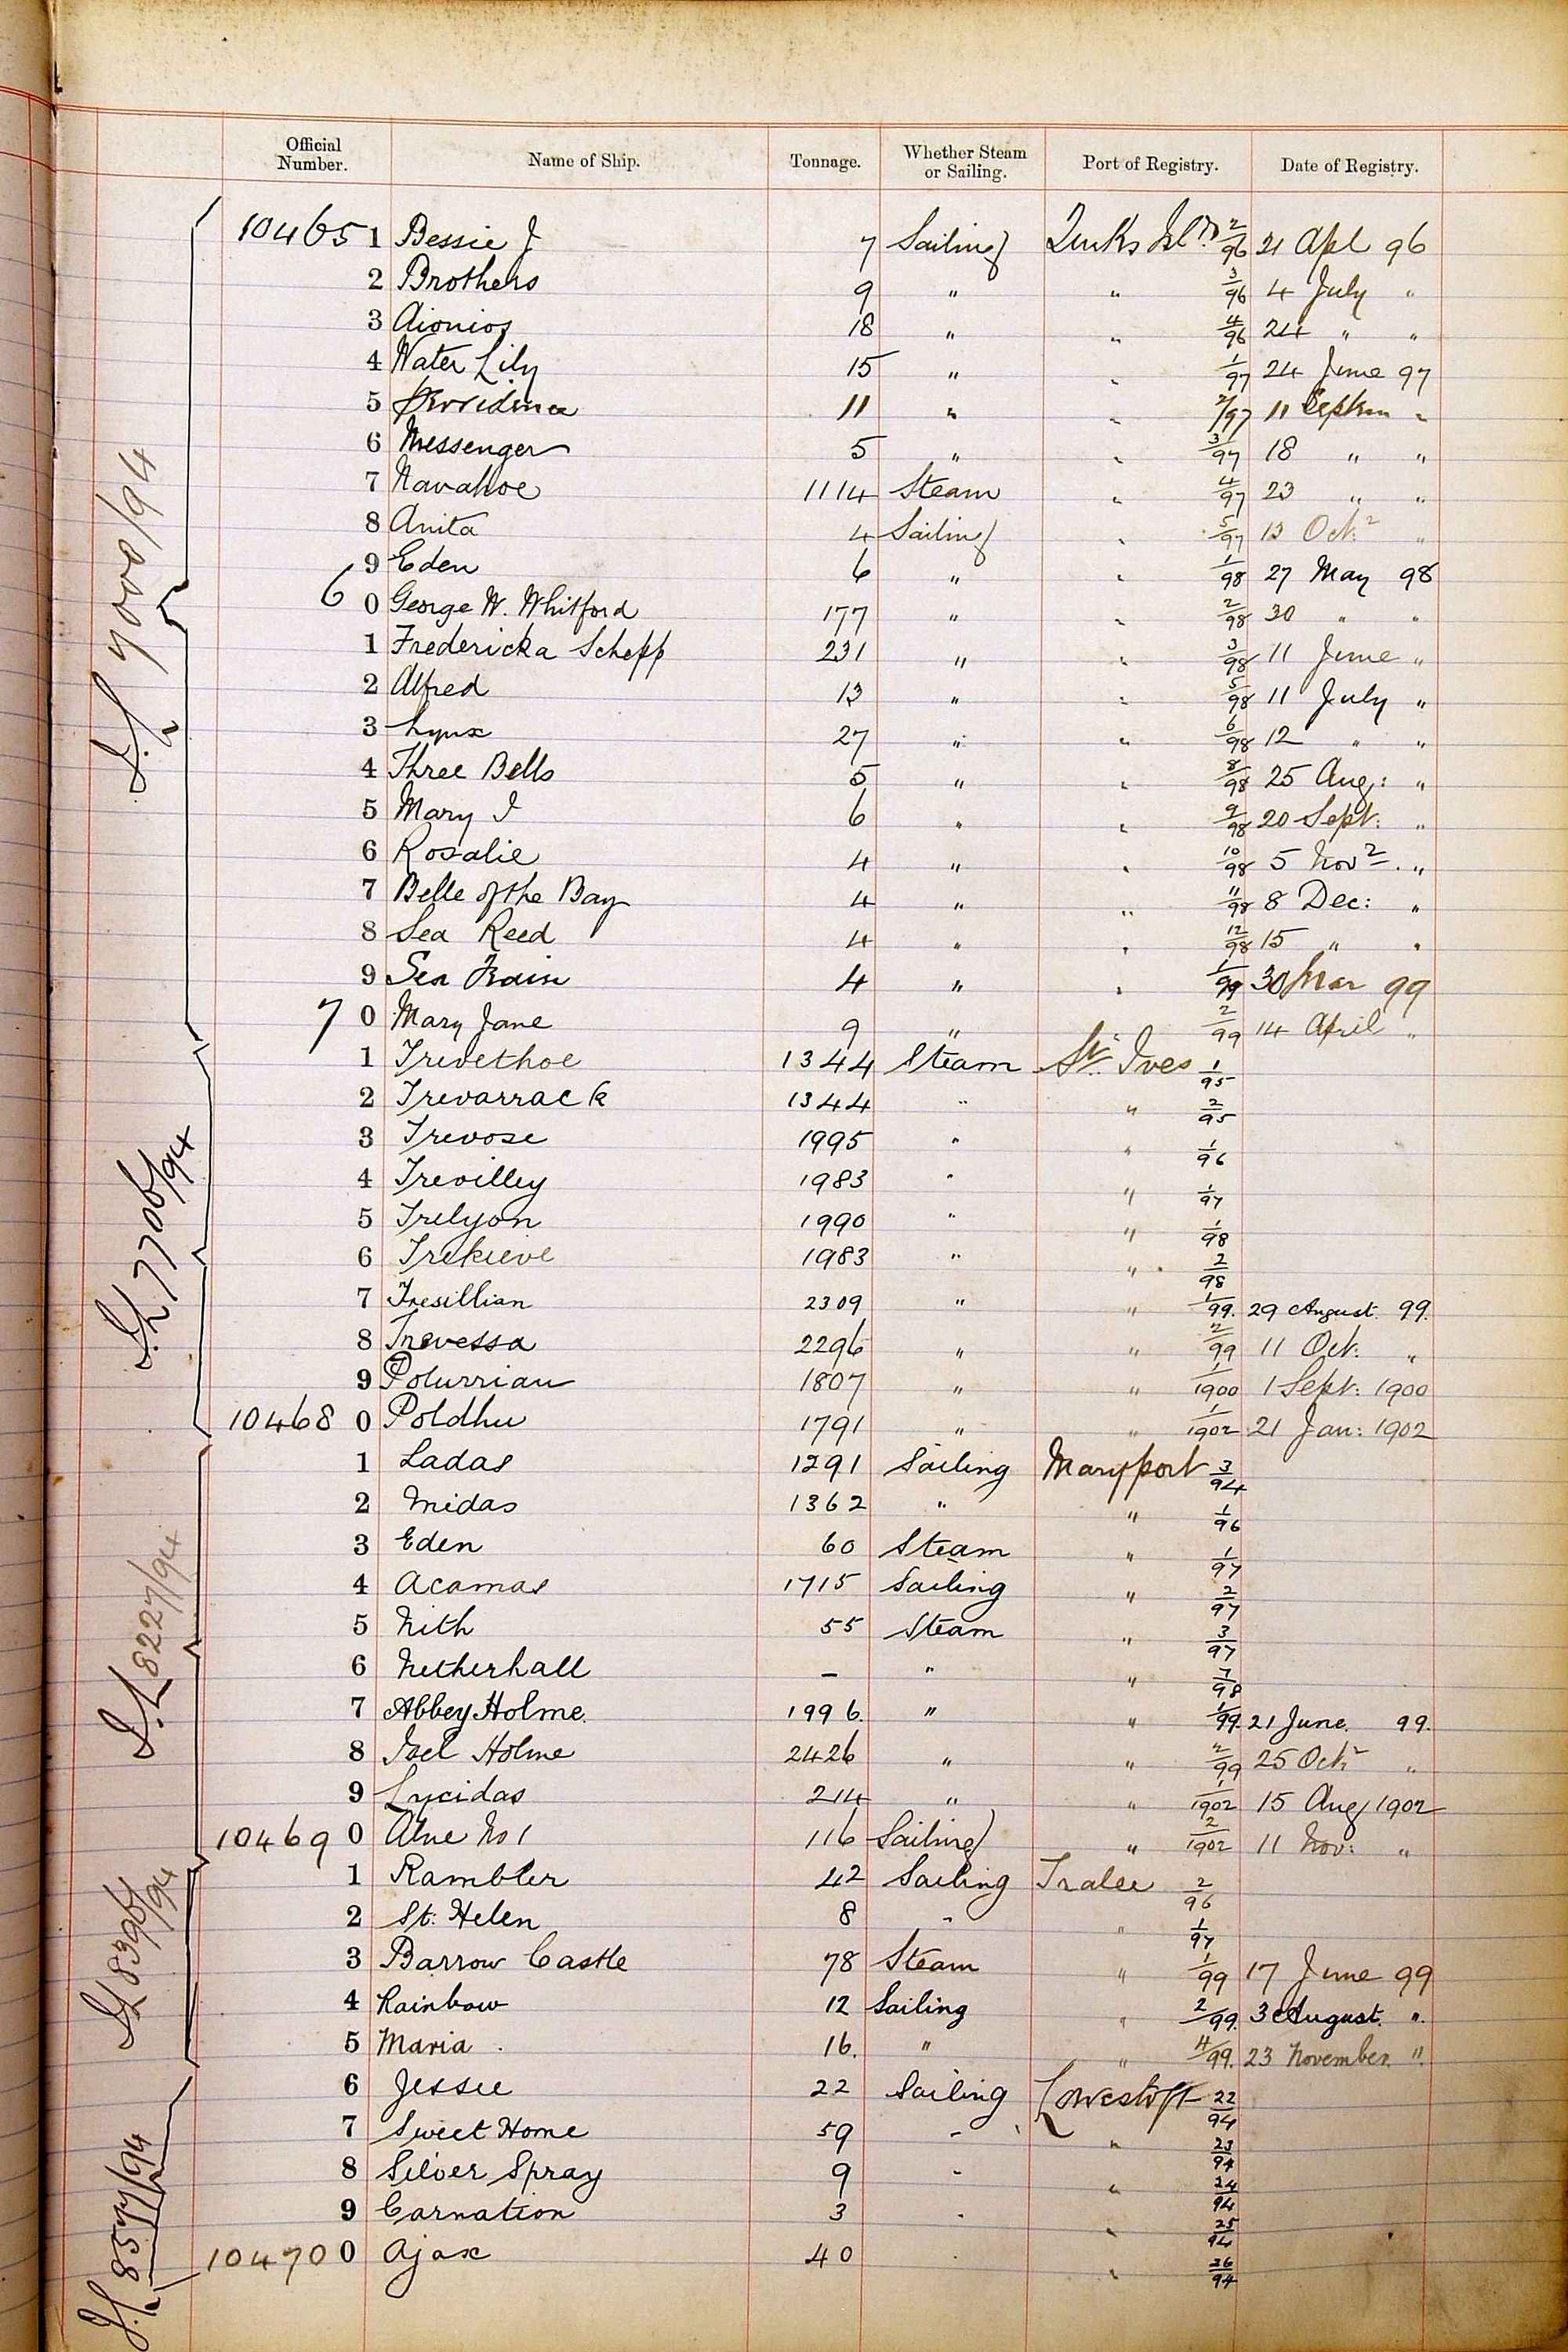 Official Number. Name of Ship. Tonnage. Whether Steam or Sailing. Port of Registry. Date of Registry.
104651 Bessie J 7 Sailing Turks Isl.ds 2/96 21 Apl 96
2 Brothers 9 " " 3/96 4 July "
3 Aionios 18 " " 4/96 24 " "
4 Water Lily 15 " " 1/97 24 June 97
5 Providence 11 " " 2/97 11 Septem "
6 Messenger 5 " " 3/97 18 " "
7 Navahoe 1114 Steam " 4/97 23 " "
8 Anita 4 Sailing " 5/97 13 Octr "
9 Eden 6 " " 1/98 27 May 98
6 0 George W. Whitford 177 " " 2/98 30 " "
1 Fredericka Schepp 231 " " 3/98 11 June "
2 Alfred 13 " " 5/98 11 July "
3 Lynx 27 " " 6/98 12 " "
4 Three Bells 5 " " 8/98 25 Aug: "
5 Mary I 6 " " 9/98 20 Sept: "
6 Rosalie 4 " " 10/98 5 Novr. "
7 Belle of the Bay 4 " " 11/98 8 Dec: "
8 Sea Reed 4 " " 12/98 15 " "
9 Sea 4 " " 1/99 30 Mar 99
7 0 Mary Jane 9 " " 2/99 14 April "
1 Trevethoe 1344 Steam St. Ives 1/95
2 Trevarrack 1344 " " 2/95
3 Trevose 1995 " " 1/96
4 Trevilley 1983 " " 1/97
5 Trelyon 1990 " " 1/98
6 Trekieve 1983 " " 2/98
7 Tresillian 2309 " " 1/99. 29 August. 99.
8 Trevessa 2296 " " 2/99 11 Oct: "
9 Polurrian 1807 " " 1/1900 1 Sept: 1900
10468 0 Poldhu 1791 " " 1/1902 21 Jan: 1902
1 Ladas 1291 Sailing Maryport 3/94
2 Midas 1362 " " 1/96
3 Eden 60 Steam " 1/97
4 Acamas 1715 Sailing " 2/97
5 Nith 55 Steam " 3/97
6 Netherhall - " " 7/98
7 Abbey Holme. 1996. " " 1/99. 21 June. 99.
8 Isel Holme 2426 " " 2/99 25 Octr "
9 Lycidas 214 " " 1/1902 15 Aug 1902
10469 0 Alne No 1 116 Sailing " 2/1902 11 Nov: "
1 Rambler 42 Sailing Tralee 2/96
2 St: Helen 8 " " 1/97
3 Barrow Castle 78 Steam " 1/99 17 June 99
4 Rainbow 12 Sailing " 2/99. 3 August. ".
5 Maria. 16. " " 4/99. 23 November. ".
6 Jessie 22 Sailing Lowestoft 22/94
7 Sweet Home 59 " " 23/94
8 Silver Spray 9 " " 24/94
9 Carnation 3 " " 25/94
10470 0 Ajax 40 " " 36/94
7000/94
7706/94
8227/94
8396/94
8577/94